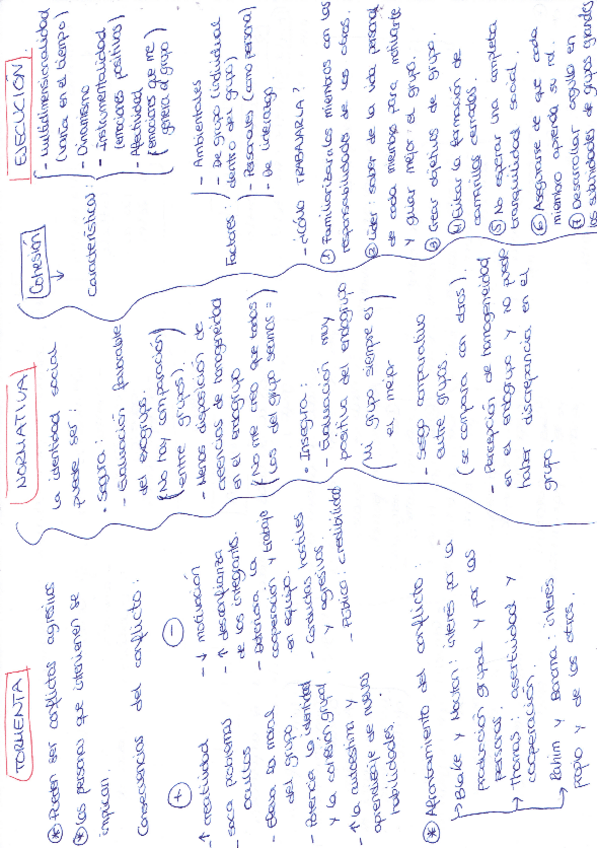 TORMENTA
* Pueden ser conflictos agresivos
* Las personas que intervienen se
implican.
Consecuencias del conflicto:
+
- ↑ creatividad
- saca problemas
ocultos
- Eleva la moral
del grupo.
- Potencia la identidad
y la cohesión grupal
- ↑ la autoestima y
aprendizaje de nuevas
habilidades.
-
- ↓ motivación
- ↑ desconfianza
de los integrantes.
la
cooperación y trabajo
en equipo.
- Conductas hostiles
y agresivas
- Público: credibilidad
* Afrontamiento del conflicto:
→ Blake y Mouton: interés por la
producción grupal y por las
personas.
→ Thomas: asertividad y
cooperación.
→ Rahim y Bonoma: interés
propio y de los otros.
NORMATIVA
La identidad social
puede ser:
• Segura:
- Evaluación favorable
del exogrupo.
(No hay comparación
entre grupos)
- Menos disposición de
creencias de homogeneidad
en el endogrupo
(No me creo que todos
los del grupo seamos =)
• Insegura:
- Evaluación muy
positiva del endogrupo
(Mi grupo siempre es
el mejor)
- Sesgo comparativo
entre grupos.
(se compara con otros).
- Percepción de homogeneidad
en el endogrupo y no puede
haber discrepancia en el
grupo.
EJECUCIÓN
Cohesión
↓
Características:
- Multidimensionalidad
(varía en el tiempo)
- Dinamismo
- Instrumentalidad
(emociones positivas)
- Afectividad
(emociones que me
genera el grupo)
Factores:
- Ambientales
- De grupo (individual
dentro del grupo)
- Personales (como persona)
- De liderazgo.
- ¿CÓMO TRABAJARLA?
① Familiarizar a los miembros con las
responsabilidades de los otros.
② Líder: saber de la vida personal
de cada miembro para motivarle
y guiar mejor el grupo.
③ Crear objetivos de grupo.
④ Evitar la formación de
camarillas cerradas
⑤ No esperar una completa
tranquilidad social.
⑥ Asegurarse de que cada
miembro aprenda su rol.
⑦ Desarrollar orgullo en
las subunidades de grupos grandes